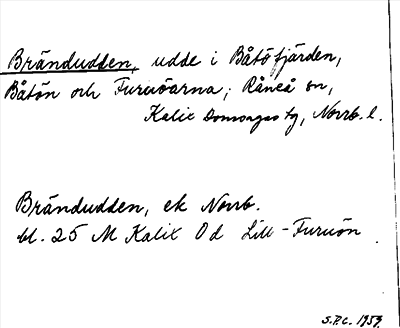 Brändudden, udde i Båtöfjärden,
Båtön och Furuöarna; Råneå sn,
Kalix domsagas tg, Norrb. l.
Brändudden, ek Norrb.
bl. 25 M Kalix Od Lill-Furuön
S.P.C. 1959.